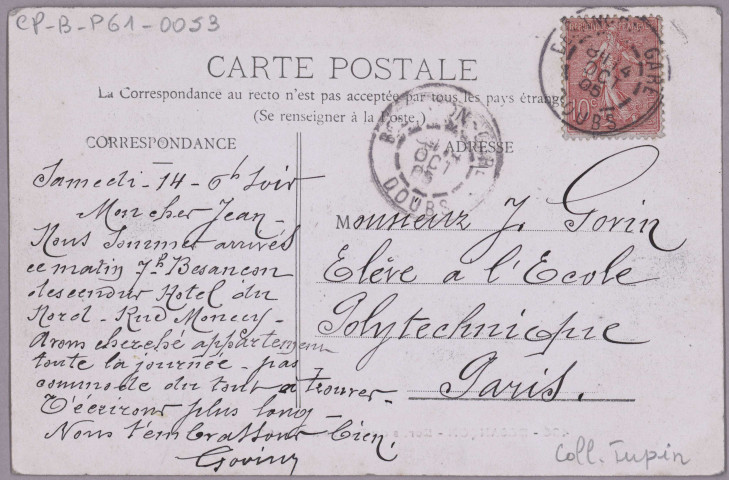 CP-B-P61-0053
CARTE POSTALE
La Correspondance au recto n'est pas acceptée par tous les pays étrang
(Se renseigner à la Poste.)
CORRESPONDANCE
ADRESSE
Samedi - 14 - 6h Soir
Mon cher Jean -
Nous sommes arrivés
ce matin 7h Besançon
descendus Hotel du
Nord - Rue Moncey -
Avons cherché appartement
toute la journée - pas
commode du tout à trouver -
T'écrirons plus long -
Nous t'embrassons bien.
Monsieur J. Gorin
Elève a l'Ecole
Polytechnique
Paris.
GARE
DOUBS
10c
GARE
DOUBS
Coll. Tupin